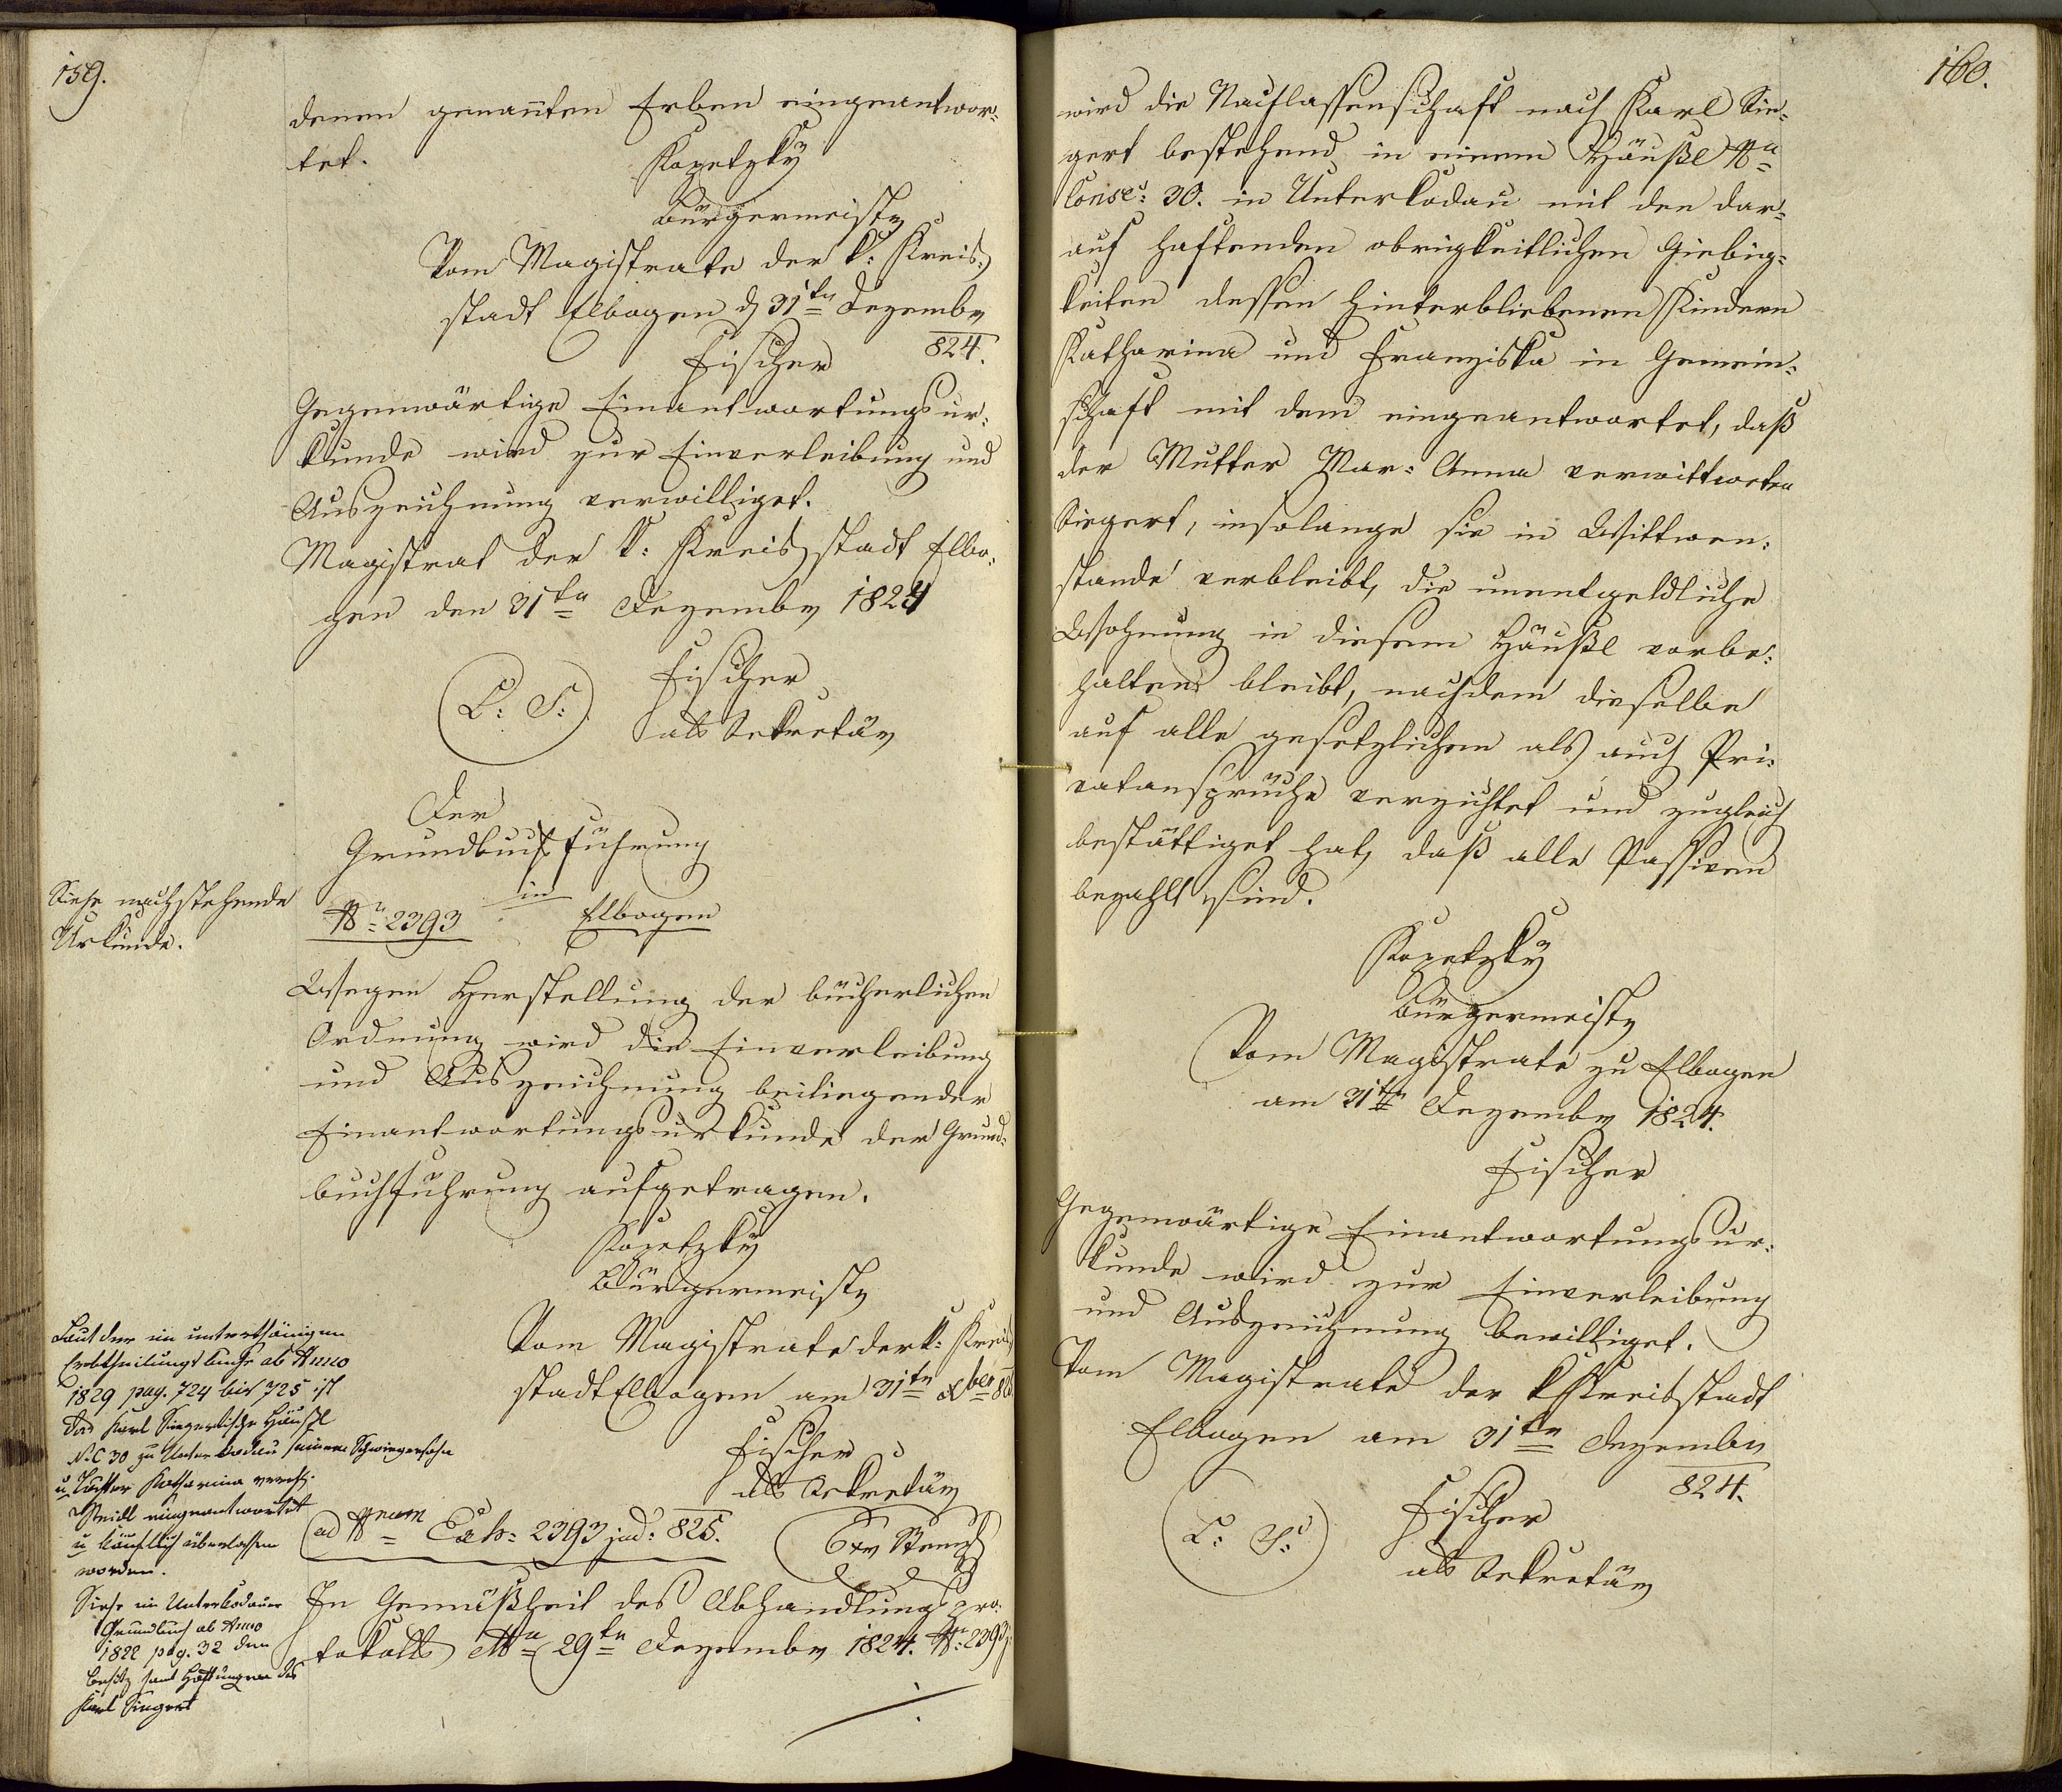 159.
denen genannten Erben eingeantwor=
tet.
Kopetzky
Bürgermeister
Vom Magistrate der k: Kreis=
stadt Elbogen d 31ten Dezember
824.
Fischer
Gegenwärtige Einantwortungsur=
kunde wird zur Einverleibung und
Auszeichnung verwilliget.
Magistrat der k: Kreisstadt Elbo=
gen den 31ten Dezember 1824
L: S:
Fischer
als Sekretär
Der
Grundbuchsführung
in
Nr 2393 Elbogen
Siehe nachstehende
Urkunde.
Wegen Herstellung der bücherlichen
Ordnung wird die Einverleibung
und Auszeichnung beiliegender
Einantwortungsurkunde der Grund=
buchführung aufgetragen.
Kopetzky
Bürgermeister
Vom Magistrate der k: Kreis
stadt Elbogen am 31ten
Fischer
als Sekretär
Laut der im unterthänigen
Erbtheilungsbuche ab Anno
1829 pag. 724 bis 725 ist
das Karl Siegertische Häußl
N.C 30 zu Unterkodau seinem Schwiegersohn
u Tochter Katharina
eingeantwortet
u käuflich überlassen
worden.
Siehe im Unterkodauer
Grundbuch ab Anno
1822 pag. 32 den
Besitz samt Haftungen des
Karl Siegert
ad Nrum Exh: 2393 jud: 825.
6xr Stempl
In Gemäßheit des Abhandlungspro=
tokolls 29ten Dezember 1824. Nr: 2393
160.
wird die Nachlassenschaft nach Karl Sie=
gert bestehend in einem Häußl Nu
Conse: 30. in Unterkodau mit den dar=
auf haftenden obrigkeitlichen Giebig=
keiten dessen hinterbliebenen Kindern
Katharina und Franziska in Gemein=
schaft mit dem eingeantwortet, daß
der Mutter Mar: Anna verwittweten
Siegert, insolange sie in Wittwen=
stande verbleibt, die unentgeldliche
Wohnung in diesem Häußl vorbe=
halten bleibt, nachdem dieselbe
auf alle gesetzlichen als auch Pri=
vatansprüche verzichtet und zugleich
bestättiget hat, daß alle Passiven
bezahlt sind.
Kopetzky
Bürgermeister
Vom Magistrate zu Elbogen
am 31ten Dezember 1824.
Fischer
Gegenwärtige Einantwortungsur=
kunde wird zur Einverleibung
und Auszeichnung bewilliget.
Vom Magistrate der k Kreisstadt
Elbogen am 31ten Dezember
824.
L: S:
Fischer
als Sekretär